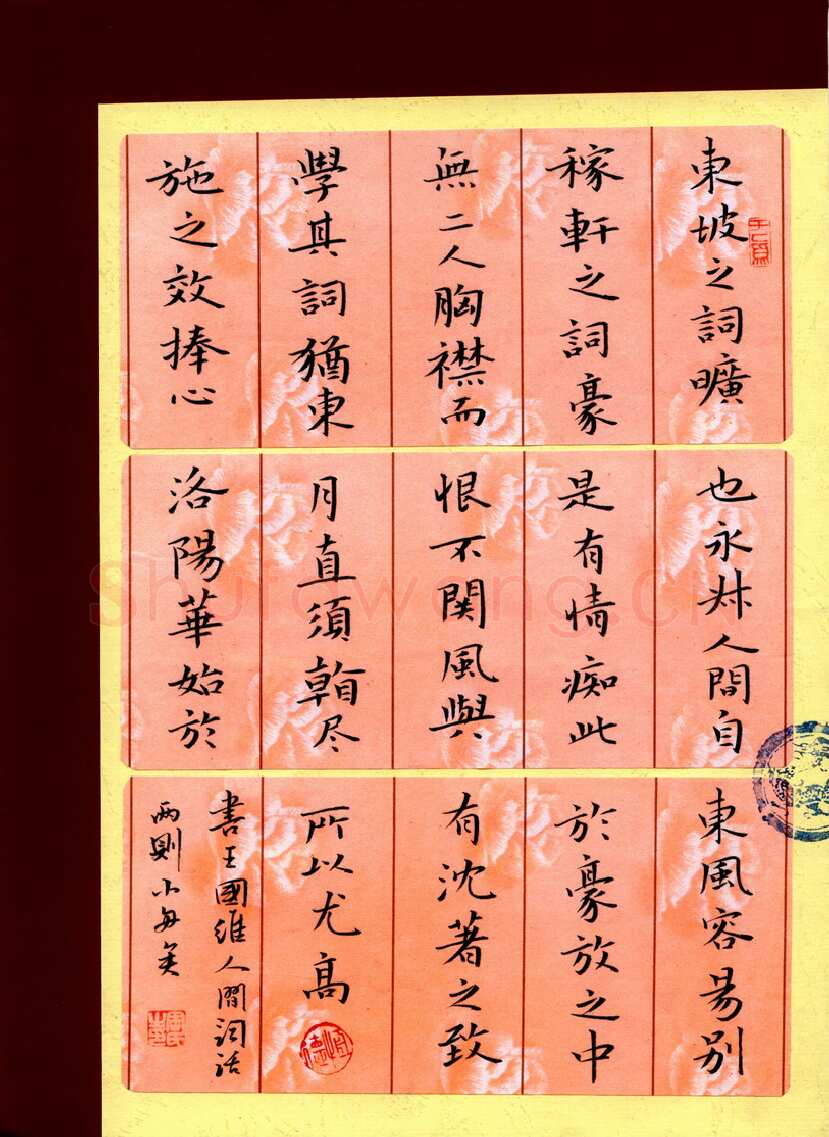 東坡之詞曠
稼軒之詞豪
無二人胸襟而
學其詞猶東
施之效捧心
也永叔人間自
是有情痴此
恨不関風與
月直須看尽
洛陽華始於
東風容易別
於豪放之中
有沈著之致
所以尤高
書王國維人間詞話
兩則
Shufawang.cn